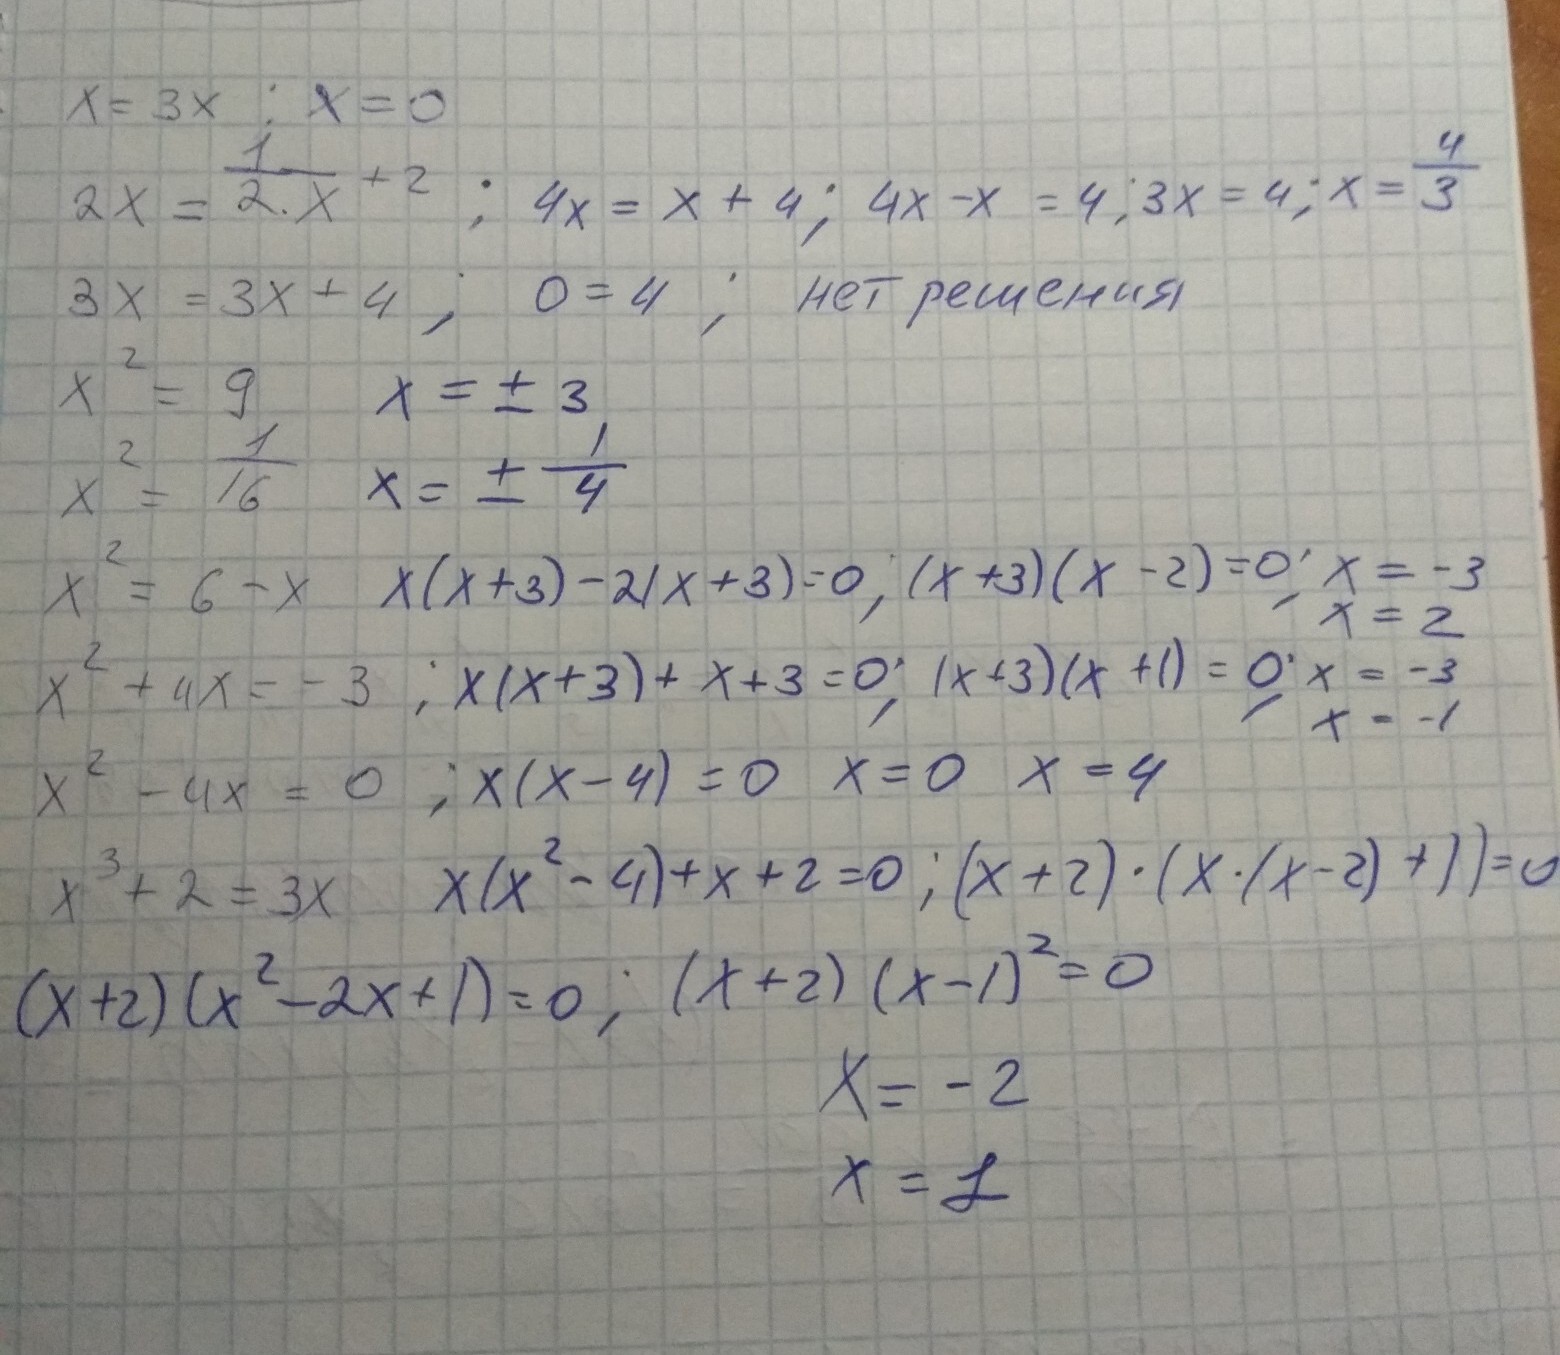 x = 3x ; x = 0
2x = 1/(2·x) + 2 ; 4x = x + 4 ; 4x - x = 4 ; 3x = 4 ; x = 4/3
3x = 3x + 4 ; 0 = 4 ; нет решения
x² = 9 x = ± 3
x² = 1/16 x = ± 1/4
x² = 6 - x x(x+3) - 2(x+3) = 0 ; (x+3)(x-2) = 0 ; x = -3
x = 2
x² + 4x = -3 ; x(x+3) + x + 3 = 0 ; (x+3)(x+1) = 0 ; x = -3
x = -1
x² - 4x = 0 ; x(x-4) = 0 x = 0 x = 4
x³ + 2 = 3x x(x² - 4) + x + 2 = 0 ; (x+2)·(x·(x-2)+1) = 0
(x+2)(x² - 2x + 1) = 0 ; (x+2)(x-1)² = 0
x = -2
x = 1